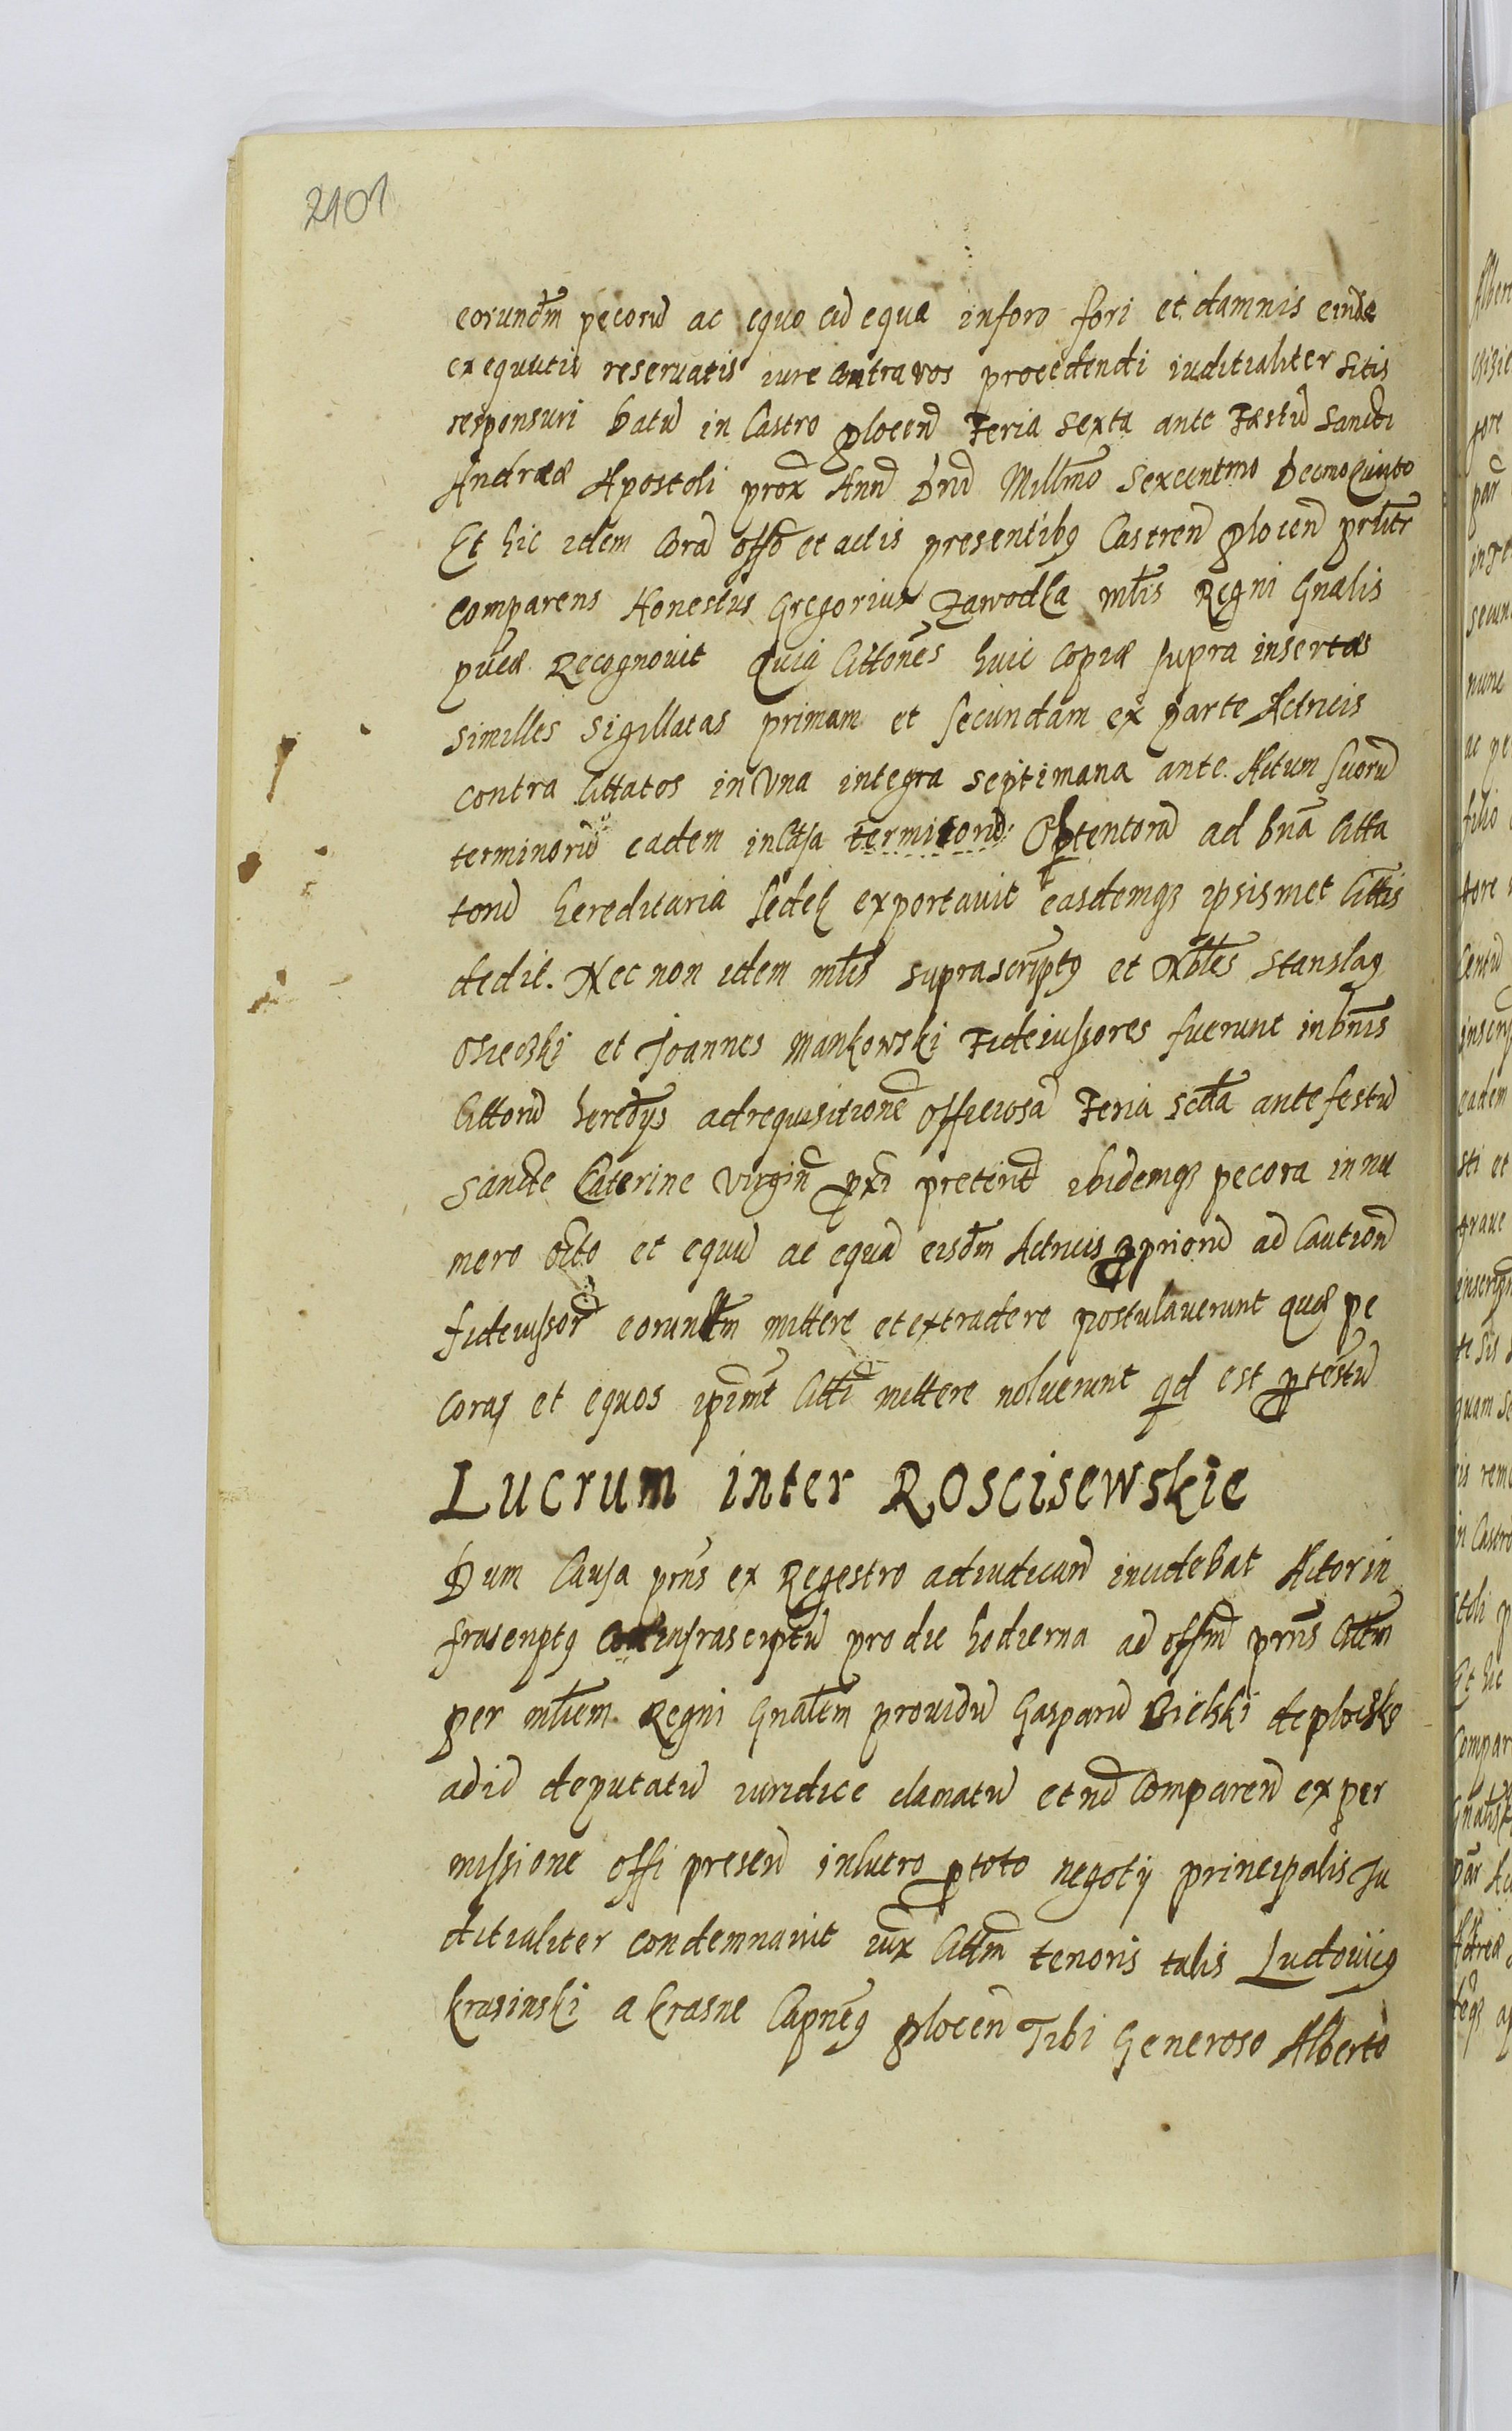 2101
eorundm pecoru ac equo ac equa in foro fori et damnis einde
exequutis reseruatis iure contra vos procedendi iuditialiter sitis
responsuri Datu in Castro plocen Feria sexta ante Festu Sancti
Andreæ Apostoli prox Ann Dni Millmo Sexcentmo Decmo Quinto
Et hic idem Cora offo et actis presentibq Castren plocen prlitr
comparens Honestus Gregorius Zawodka mlis Regni Gnalis
pucæ Recognouit Quiq Cittones huic copiæ supra insertæ
similles sigillatas primam et secundam ex parte Actricis
contra Cittatos in Vna integra septimana ante Actum suoru
terminoru eadem in Causa terminoru Obtentoru ad bna Citta
toru hereditaria sedeh exportauit easdemqz ipsismet Cittis
dedit. Nec non idem mlis suprascriptq et Nbles Stanslaq
Osiecki et Joannes Mankowski Fideiussores fuerunt in bnis
Cittoru heredys ad requisitione officiosa Feria scda ante festu
Sancte Caterine Virgin pxi preterit ibidemqz pecora in nu
mero octo et equu ac equa eisdm Actricis proprioru ad Caution
fideiussor eorundm mittere et extradere postulauerunt quæ pe
coras et equos ipimt Citti mittere noluerunt qd est protestu
Lucrum inter Roscisewskie
Dum Causa prns ex Regestro adiudicand incidebat Actor in
frascriptq infrascriptu pro die hodierna ad offm prns Cittm
per mliem Regni Gnalem prouidu Gasparu Bielski de plocsko
ad id deputatu iuridice clamatu et no Comparen ex per
missione offi presen in lucro p toto negoty principalis Ju
ditialiter condemnauit iux Cittm tenoris talis Ludouicq
Krasinski a Krasne Capneq plocen Tibi Generoso Alberto